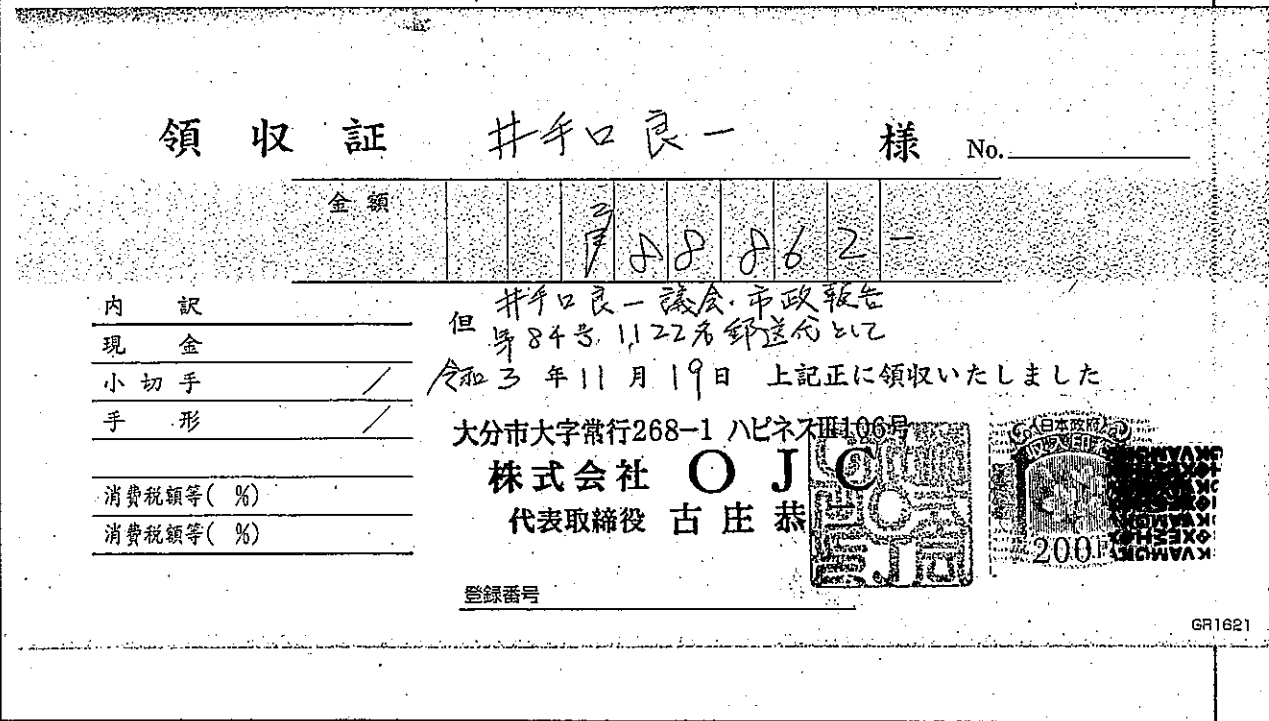 領収証 井手口良一 様 No.
金額 88862-
内訳
現金
小切手 /
手形 /
消費税額等( %)
消費税額等( %)
但 井手口良一議会・市政報告
第84号 1,122名郵送代として
令和3年11月19日 上記正に領収いたしました
大分市大字常行268-1 ハピネスⅢ106号
株式会社 OJC
代表取締役 古庄恭
日本政府
200円
登録番号
GR1621